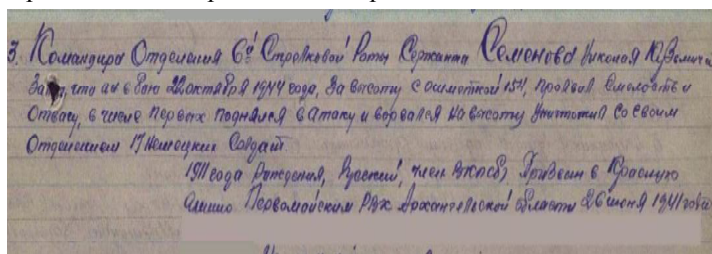 3. Командира Отделения 6ой Стрелковой Роты Сержанта Семенова Николая Кузьмича
За то, что он в бою 22 октября 1944 года, за высоту с отметкой 154, проявил Смелость и
Отвагу, в числе первых поднялся в атаку и ворвался на высоту уничтожил со своим
Отделением 17 немецких Солдат
1911 года рождения, Русский, член ВКП(б) Призван в Красную
Армию Первомайским РВК Архангельской области 26 июня 1941 года